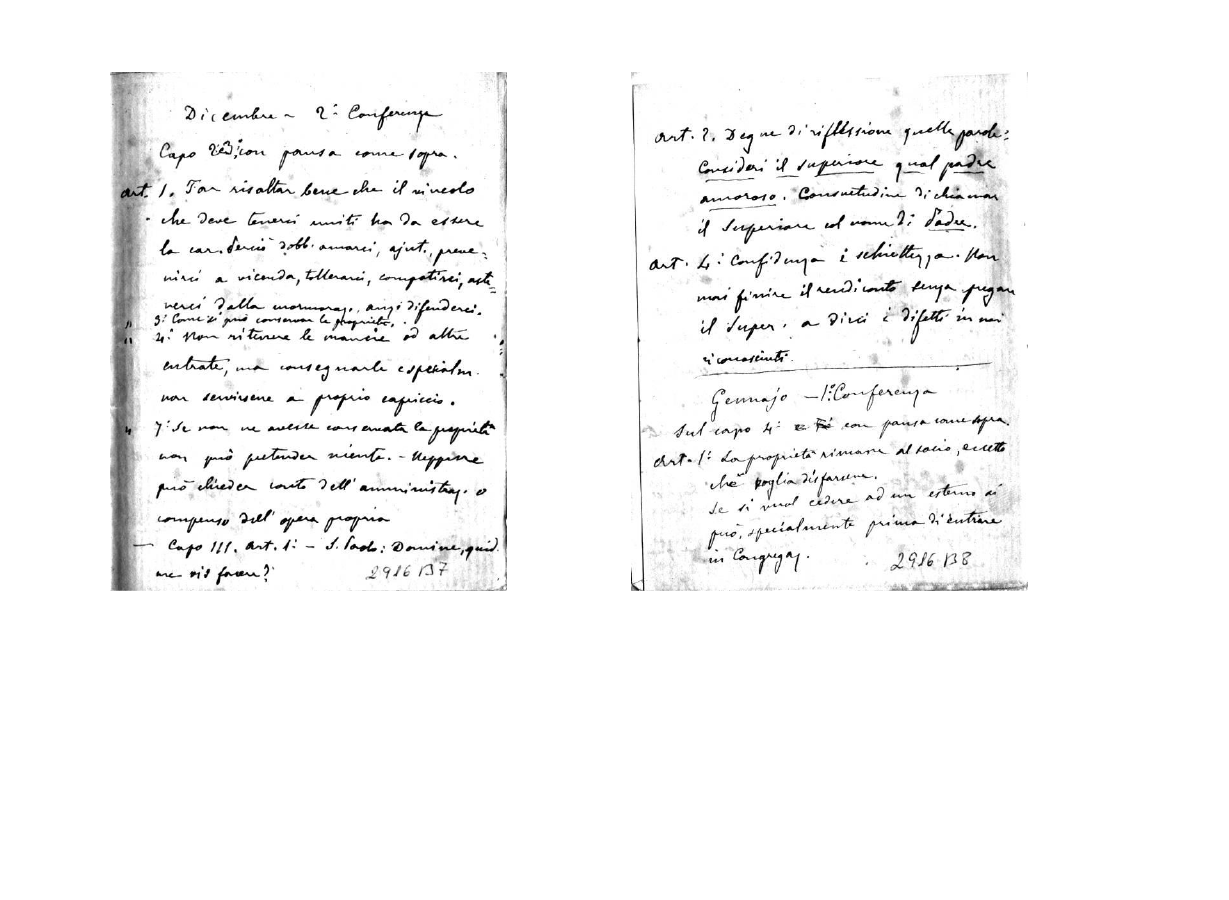 Dicembre - 2ª Conferenza
Capo 2º e 3º, con pausa come sopra.
Art. 1. Far risaltar bene che il vincolo
che deve tenerci uniti ha da essere
la car. Perciò dobb. amarci, ajut., preve-
nirci a vicenda, tollerarci, compatirci, aste-
nerci dalla mormoraz., anzi difenderci.
" 3º Come si può conservar la proprietà.
" 4º Non ritenere le mancie od altre
entrate, ma consegnarle e specialm.
non servirsene a proprio capriccio.
" 7º Se non ne avesse conservata la proprietà
non può pretender niente. - Neppure
può chieder conto dell'amministraz. o
compenso dell'opera propria
— Capo III. Art. 1º - S. Paolo: Domine, quid
me vis facere?
2986 B7
Art. 2. Degne di riflessione quelle parole:
Consideri il superiore qual padre
amoroso. Consuetudine di chiamar
il Superiore col nome di Padre.
Art. 4º Confidenza e schiettezza. Non
mai finire il rendiconto senza pregare
il Super. a dirci i difetti in noi
riconosciuti.
Gennajo - 1ª Conferenza
Sul capo 4º con pausa come sopra.
Art. 1º La proprietà rimane al socio, eccetto
che voglia disfarsene.
Se si vuol cedere ad un esterno si
può, specialmente prima di entrare
in Congregaz.
2986 B8